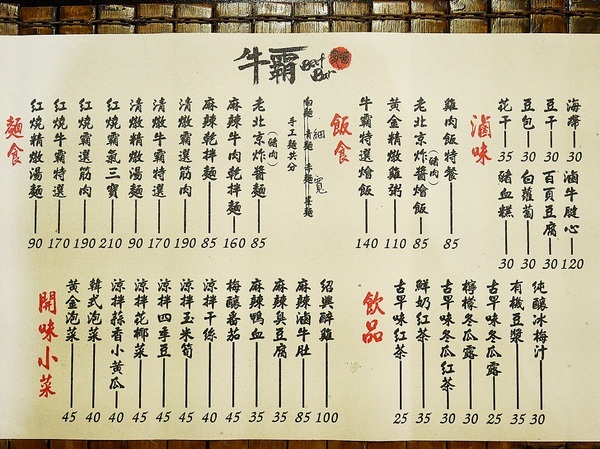 牛霸 Beef Bar
麵食
紅燒精燉湯麵 90
紅燒牛霸特選 170
紅燒霸選筋肉 190
紅燒霸氣三寶 210
清燉精燉湯麵 90
清燉牛霸特選 170
清燉霸選筋肉 190
麻辣乾拌麵 85
麻辣牛肉乾拌麵 160
老北京炸醬麵(豬肉) 85
手工麵共分
細 寬
飯食
牛霸特選燴飯 140
黃金精燉雞粥 110
老北京炸醬燴飯(豬肉) 85
雞肉飯特餐 85
滷味
花干 35
豆包 30
豆干 30
海帶 30
豬血糕 30
白蘿蔔 30
百頁豆腐 30
滷牛腱心 120
開味小菜
黃金泡菜 45
韓式泡菜 40
涼拌蒜香小黃瓜 40
涼拌花椰菜 45
涼拌四季豆 45
涼拌玉米筍 40
涼拌干絲 40
梅釀番茄 45
麻辣鴨血 35
麻辣臭豆腐 35
麻辣滷牛肚 85
紹興醉雞 100
飲品
古早味紅茶 25
鮮奶紅茶 35
古早味冬瓜紅茶 30
檸檬冬瓜露 30
古早味冬瓜露 25
有機豆漿 35
純釀冰梅汁 30